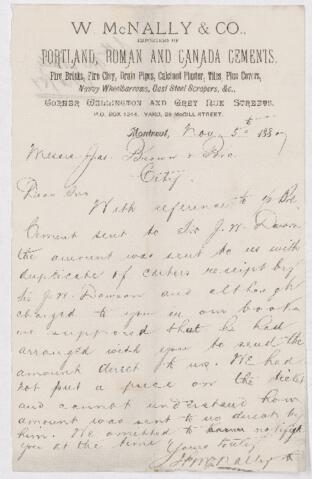 W. McNALLY & CO.,
IMPORTERS OF
PORTLAND, ROMAN AND CANADA CEMENTS,
Fire Bricks, Fire Clay, Drain Pipes, Calcined Plaster, Tiles, Flue Covers,
Navvy Wheelbarrows, Cast Steel Scrapers, &c.,
CORNER WELLINGTON AND GREY NUN STREETS.
P.O. BOX 1244, YARD, 28 McGILL STREET.
Montreal, Nov 5th 1887
Messrs Jas. Brown & Bro
City
Dear Sirs
With reference to Brl
Cement sent to Sir J. W. Dawson
the amount was sent to us with
duplicate of carters receipt by
Sir J. W. Dawson and although
charged to you in our books
we supposed that he had
arranged with you to send the
amount direct to us. We had
not put a price on the ticket
and cannot understand how
amount was sent to us direct by
him. We omitted to notify
you at the time
Yours truly
W McNally & Co